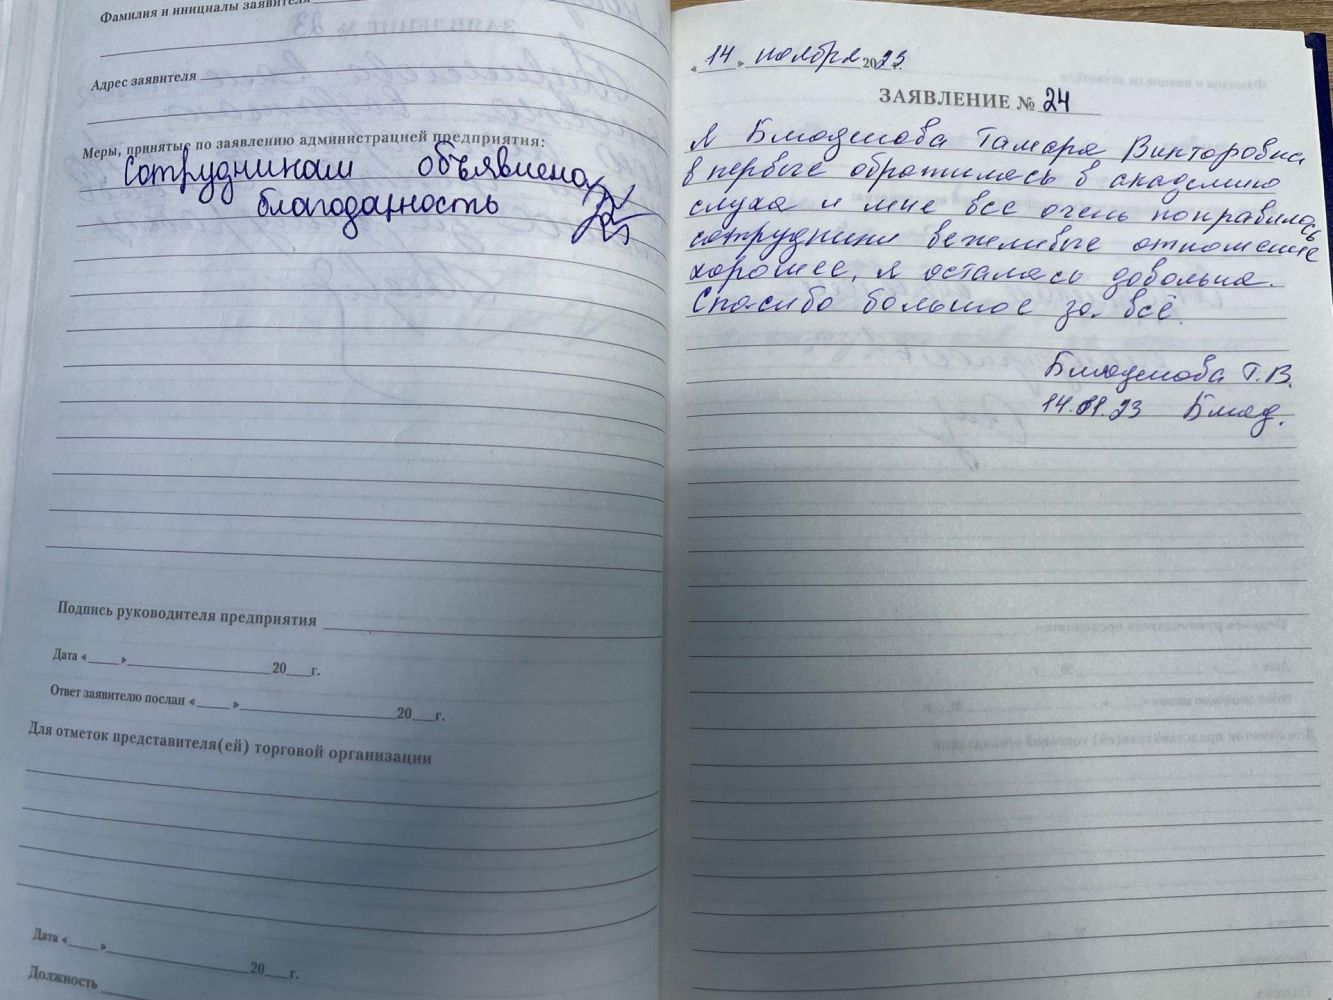 Фамилия и инициалы заявителя
Адрес заявителя
Меры, принятые по заявлению администрацией предприятия:
Сотрудникам объявлена
благодарность
Подпись руководителя предприятия
Дата «____»____________________20___г.
Ответ заявителю послан «____»____________________20___г.
Для отметок представителя(ей) торговой организации
Дата «____»____________________20___г.
Должность
«14» ноября 2023г.
ЗАЯВЛЕНИЕ № 24
Я Тамара Викторовна
в первые обратилась в академию
слуха и мне все очень понравилось
сотрудники вежливые отношение
хорошее, я осталась довольна.
Спасибо большое за всё.
Т.В.
14.11.23